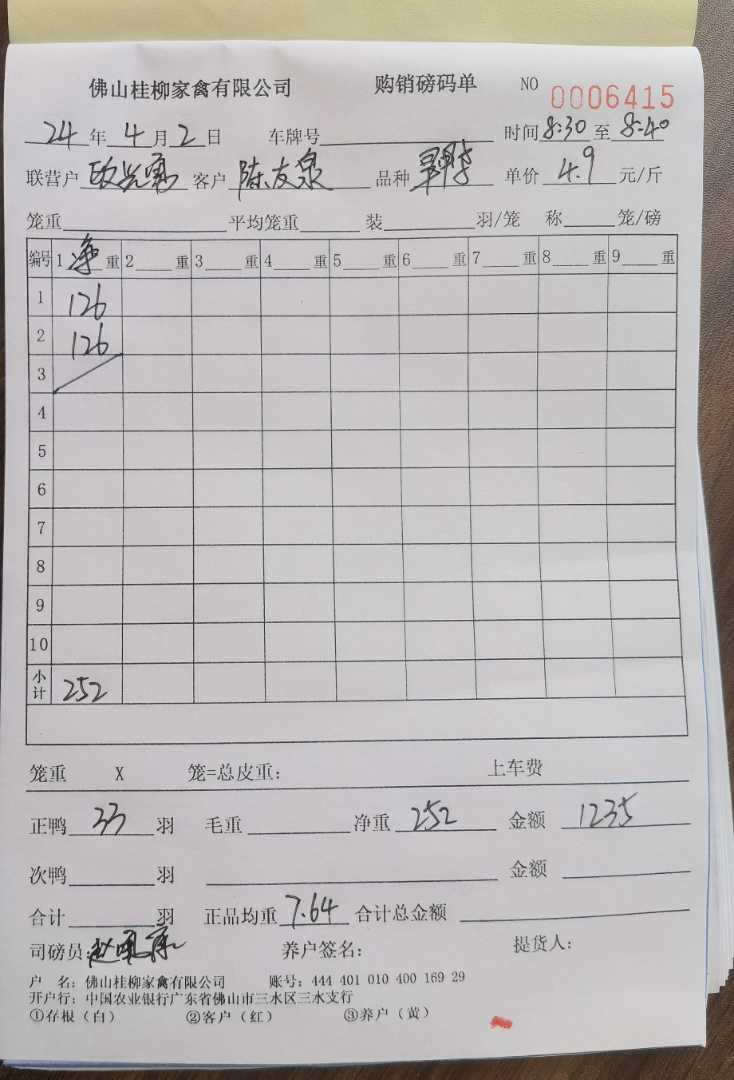 佛山桂柳家禽有限公司 购销磅码单 NO 0006415
24年4月2日 车牌号 时间8:30至8:40
联营户 客户 陈友泉 品种 单价4.9元/斤
笼重 平均笼重 装 羽/笼 称 笼/磅
编号 1净重 2 重 3 重 4 重 5 重 6 重 7 重 8 重 9 重
1 126
2 126
3
4
5
6
7
8
9
10
小计 252
笼重 X 笼=总皮重: 上车费
正鸭33羽 毛重 净重252 金额1235
次鸭 羽 金额
合计 羽 正品均重7.64 合计总金额
司磅员: 养户签名: 提货人:
户 名: 佛山桂柳家禽有限公司 账号: 444 401 010 400 169 29
开户行: 中国农业银行广东省佛山市三水区三水支行
①存根(白) ②客户(红) ③养户(黄)